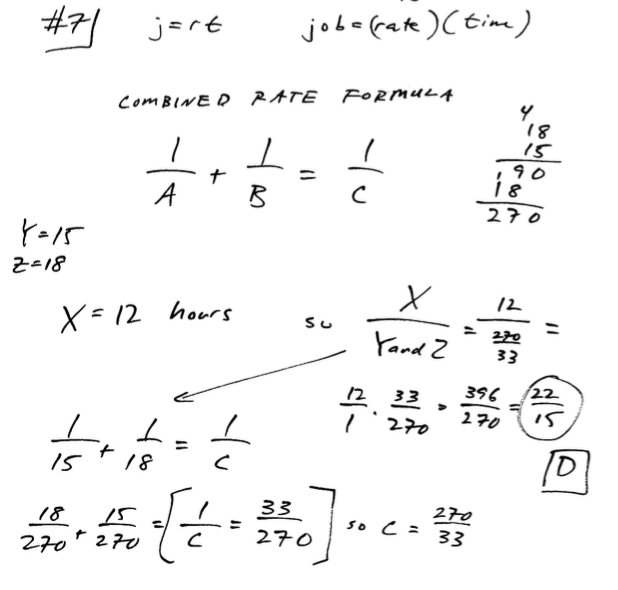 #7 j=rt job=(rate)(time)
COMBINED RATE FORMULA
1/A + 1/B = 1/C
4
18
15
190
18
270
Y=15
Z=18
X=12 hours so X/(Y and Z) = 12/(270/33) =
12/1 · 33/270 = 396/270 = 22/15
D
1/15 + 1/18 = 1/C
18/270 + 15/270 = [1/C = 33/270] so C = 270/33